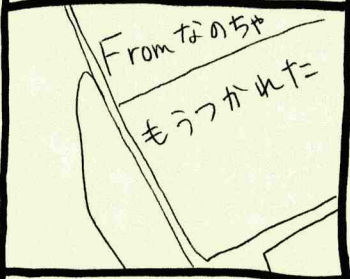 Fromなのちゃ
もうつかれた